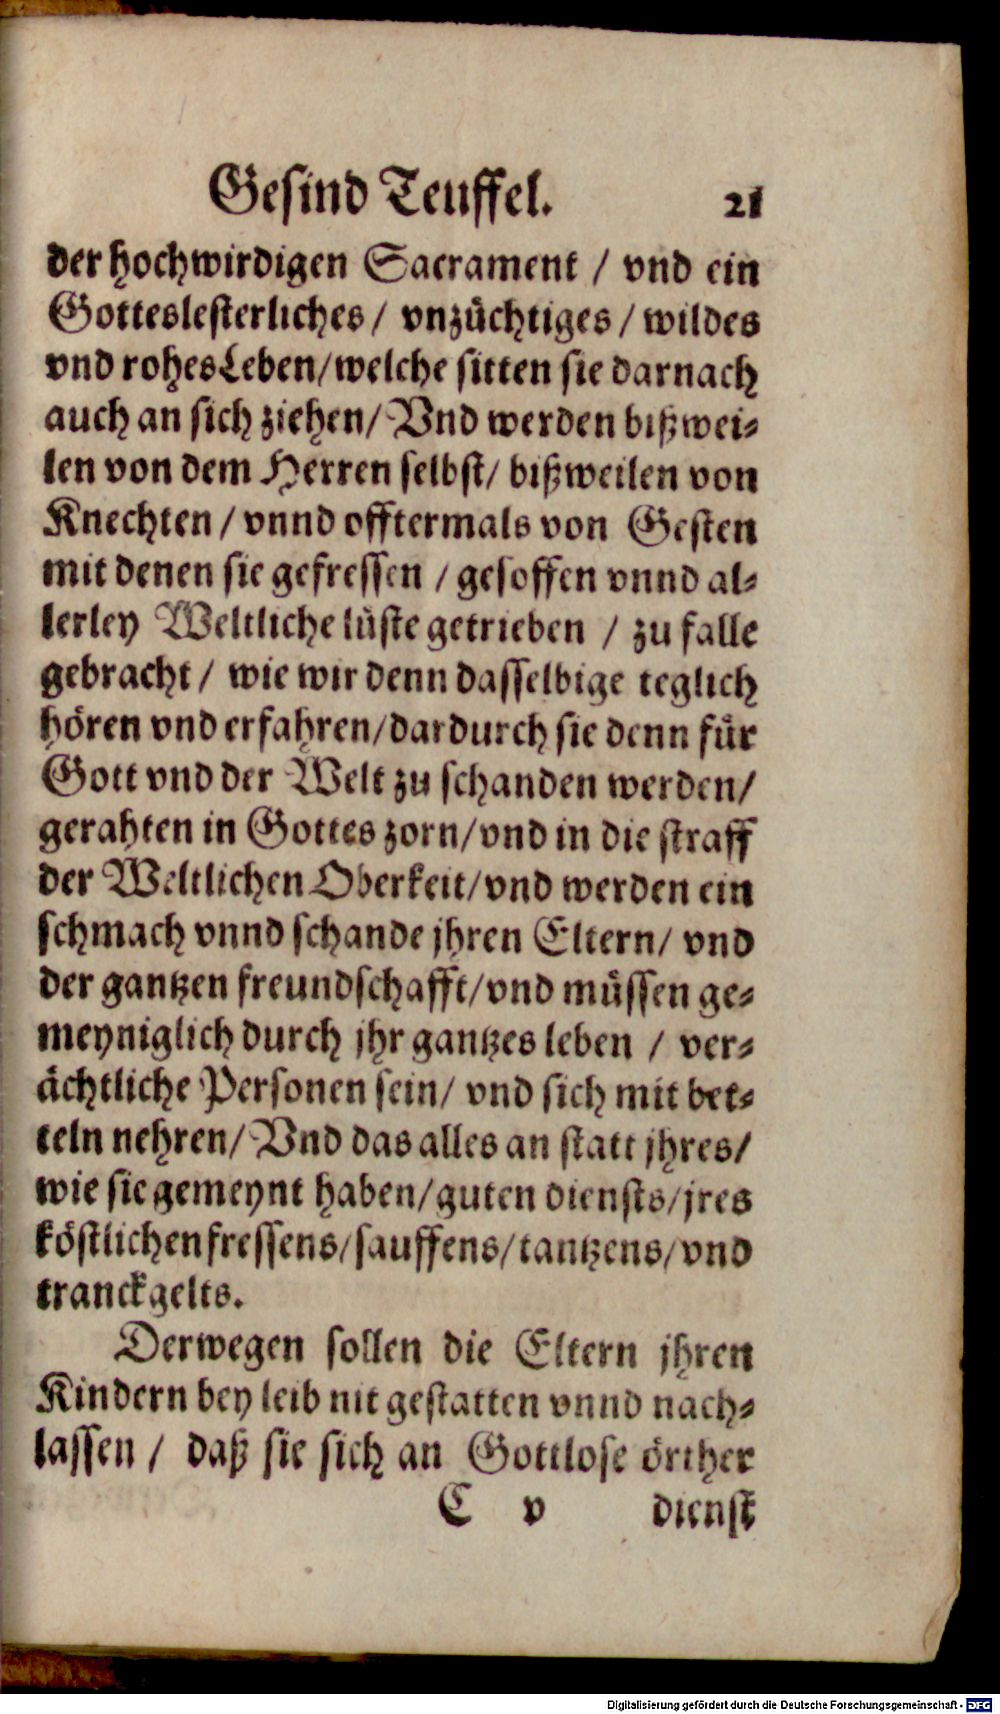 Gesind Teuffel. 21
der hochwirdigen Sacrament / vnd ein
Gotteslesterliches / vnzüchtiges / wildes
vnd rohes Leben / welche sitten sie darnach
auch an sich ziehen / Vnd werden bißwei-
len von dem Herren selbst / bißweilen von
Knechten / vnnd offtermals von Gesten
mit denen sie gefressen / gesoffen vnnd al-
lerley Weltliche lüste getrieben / zu falle
gebracht / wie wir denn dasselbige teglich
hören vnd erfahren / dardurch sie denn für
Gott vnd der Welt zu schanden werden /
gerahten in Gottes zorn / vnd in die straff
der Weltlichen Oberkeit / vnd werden ein
schmach vnnd schande jhren Eltern / vnd
der gantzen freundschafft / vnd müssen ge-
meyniglich durch jhr gantzes leben / ver-
ächtliche Personen sein / vnd sich mit bet-
teln nehren / Vnd das alles an statt jhres /
wie sie gemeynt haben / guten diensts / jres
köstlichen fressens / sauffens / tantzens / vnd
tranckgelts.
Derwegen sollen die Eltern jhren
Kindern bey leib nit gestatten vnnd nach-
lassen / daß sie sich an Gottlose örther
C v dienst
Digitalisierung gefördert durch die Deutsche Forschungsgemeinschaft - DFG